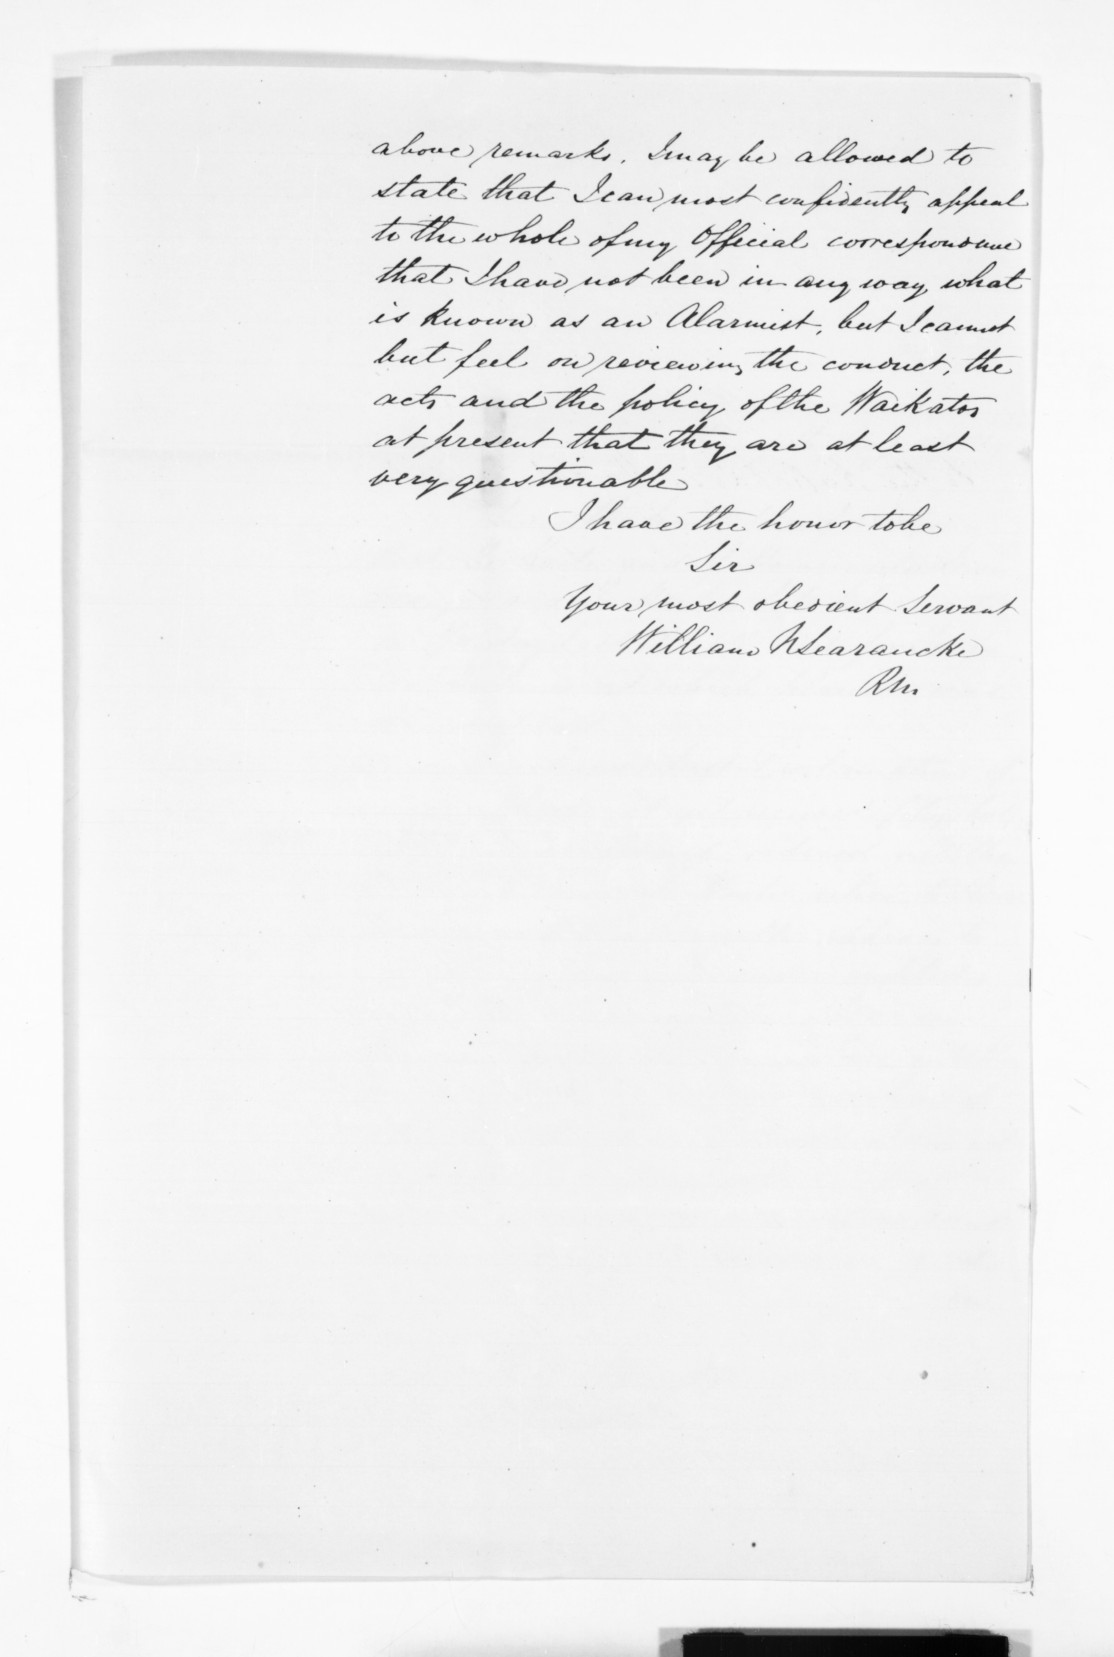 above remarks. I may be allowed to
state that I can most confidently appeal
to the whole of my Official correspondence
that I have not been in any way what
is known as an Alarmist, but I cannot
but feel on reviewing the conduct, the
acts and the policy of the Waikatos
at present that they are at least
very questionable
I have the honor to be
Sir
Your most obedient Servant
William N Searancke
RM.